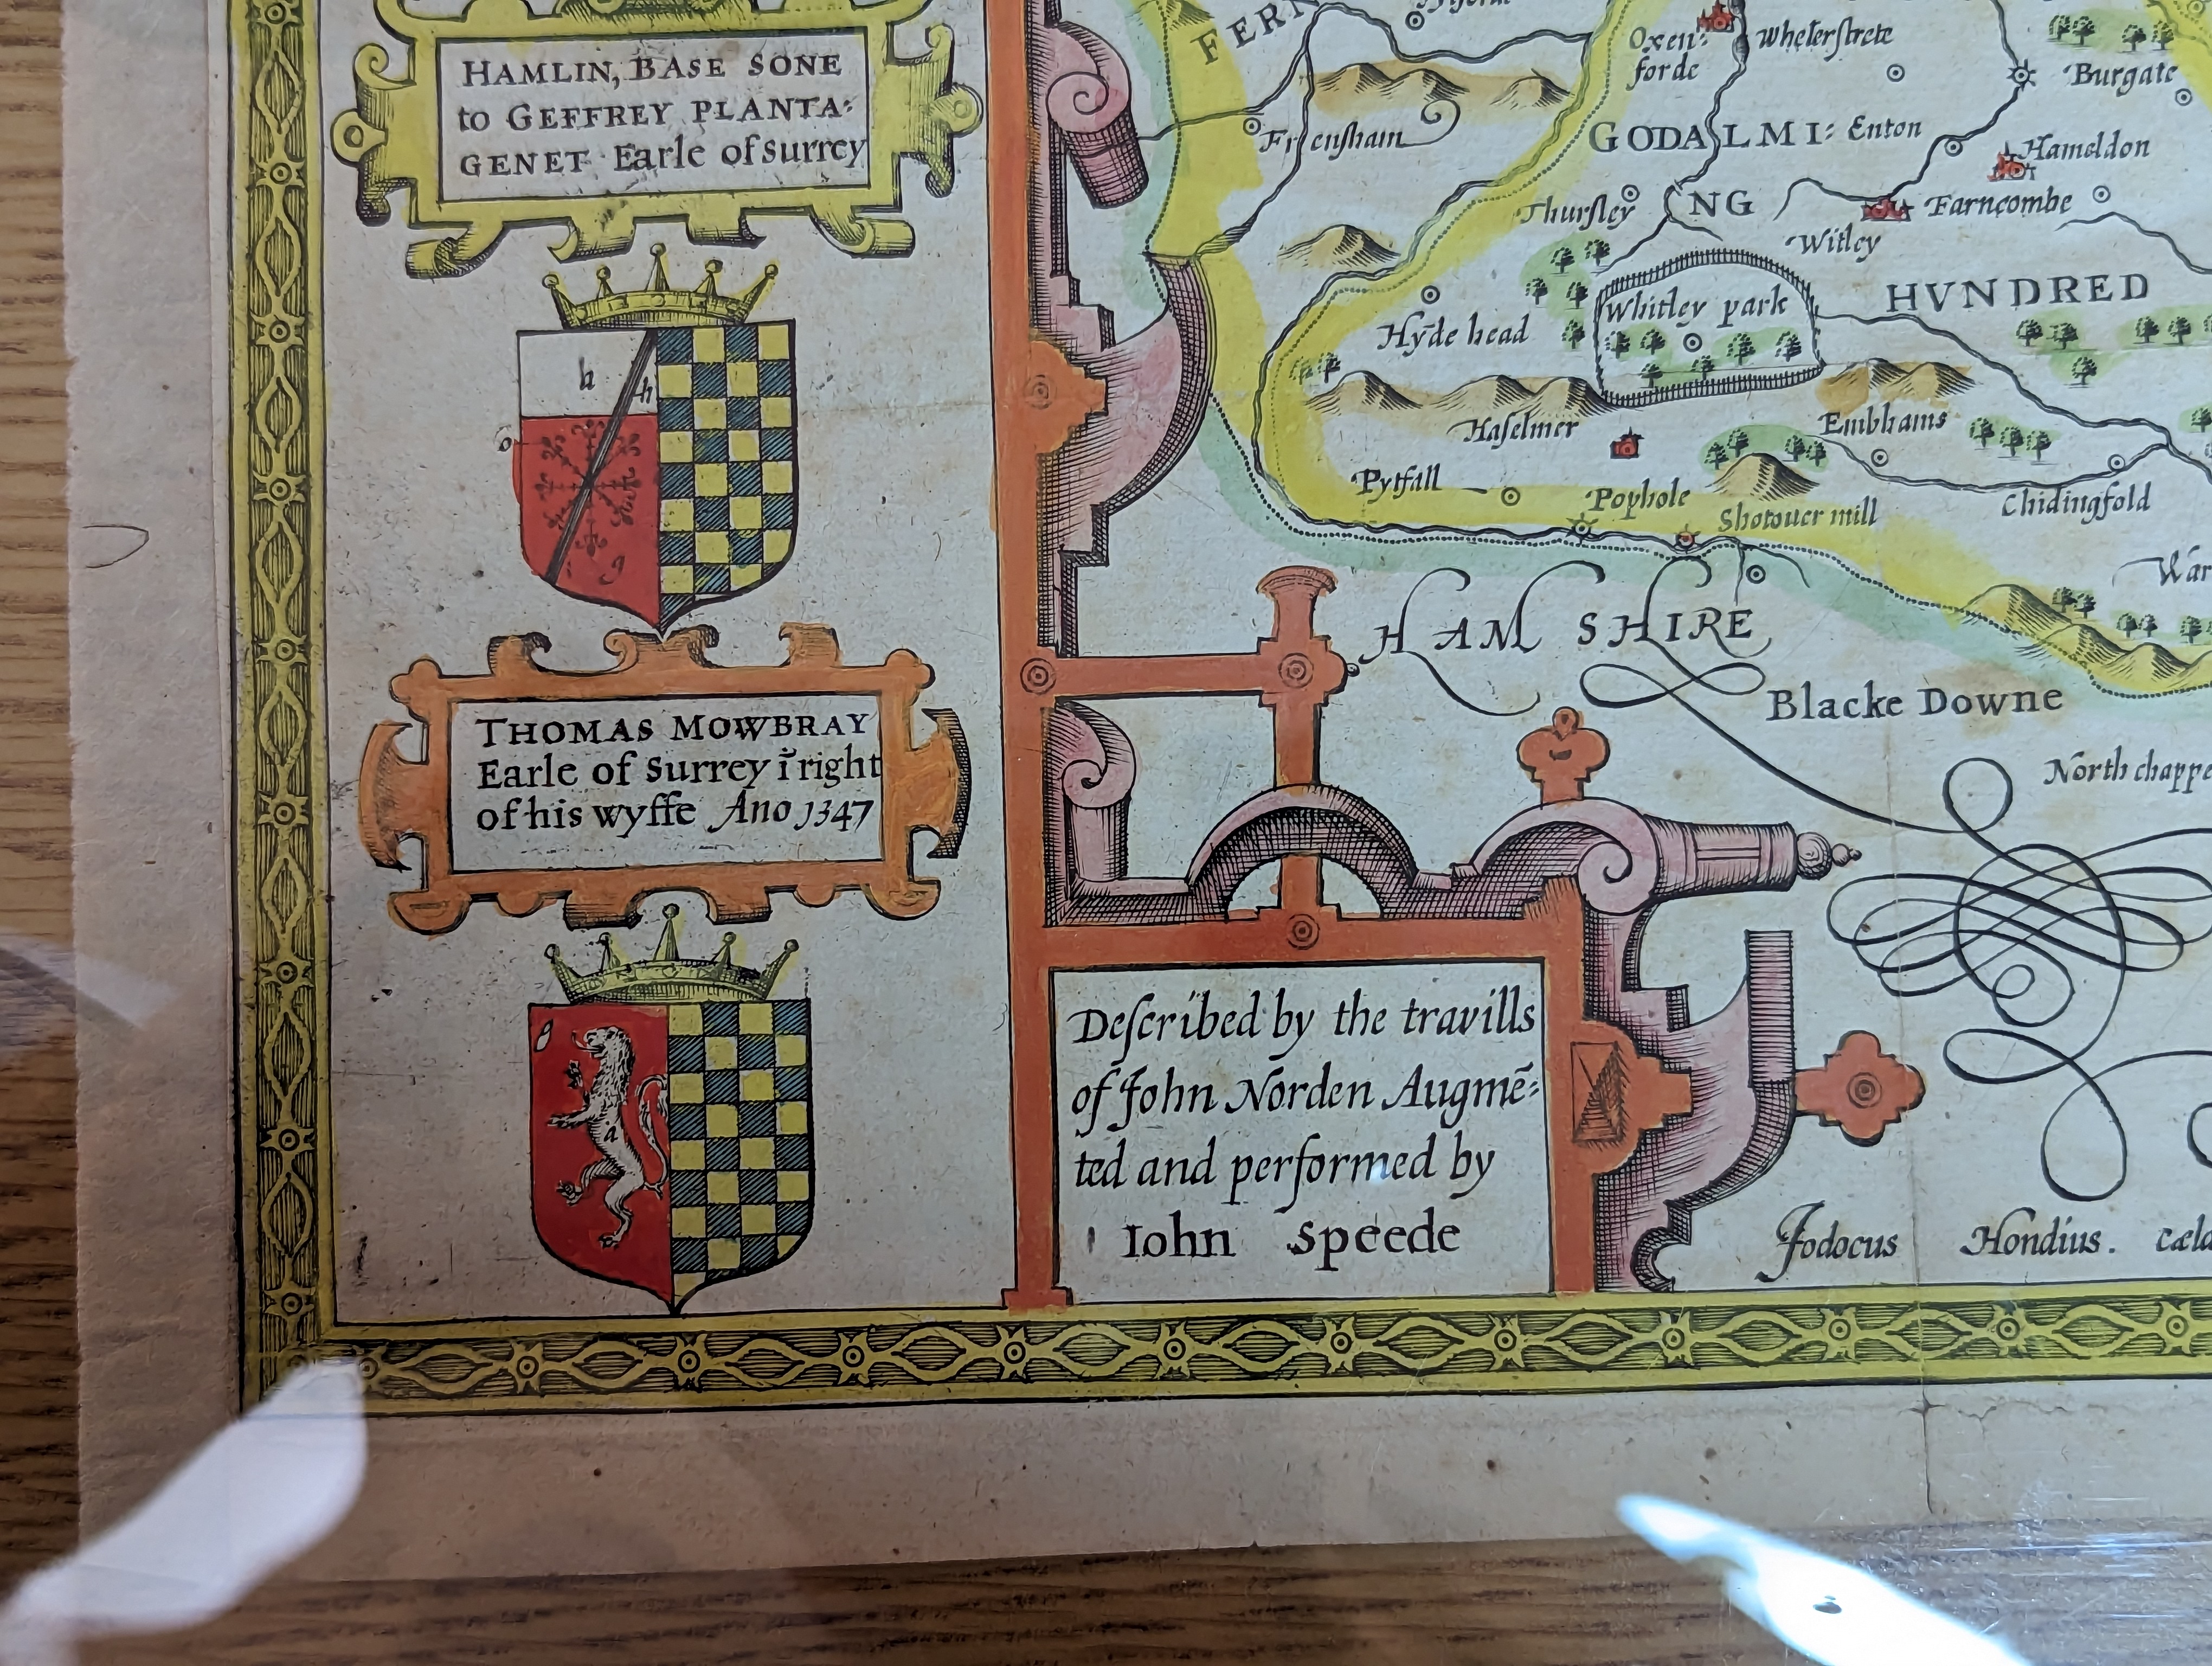 HAMLIN, BASE SONE
to GEFFREY PLANTA:
GENET Earle of surrey
h
h
o
g
THOMAS MOWBRAY
Earle of Surrey ĩ right
of his wyffe Ano 1347
a
Described by the travills
of John Norden Augmē:
ted and performed by
Iohn Speede
FERN
Oxen:
forde
Whelerstrete
Burgate
Frensham
GODALMI:
Enton
Hameldon
Thursley
NG
Farncombe
Witley
HVNDRED
Whitley park
Hyde head
Haselmer
Embhams
Pytfall
Pophole
Shotouer mill
Chidingfold
HAM SHIRE
War
Blacke Downe
North chappe
Jodocus Hondius. cæla